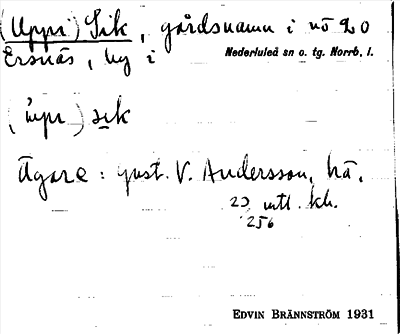 (Uppi) Sik, gårdsnamn i nö 20
Ersnäs, by i Nederluleå sn o. tg. Norrb. l.
(ˈupi) sik
Ägare: Gust. V. Andersson, hä.
23 mtl. kh.
256
EDVIN BRÄNNSTRÖM 1931